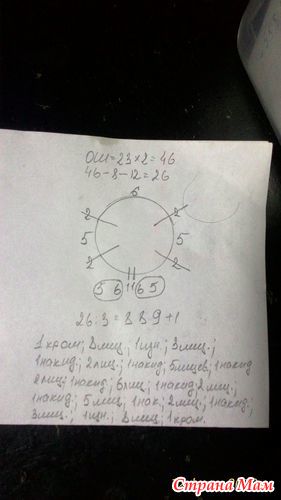 ОШ=23×2=46
46-8-12=26
6
2 2
5 5
2 2
5 6 11 6 5
26:3=8 8 9+1
1 кром; 8 лиц; 1 изн.; 3 лиц.;
1 накид; 2 лиц.; 1 накид; 5 лицев; 1 накид
2 лиц; 1 накид; 6 лиц; 1 накид; 2 лиц.;
1 накид; 5 лиц; 1 нак; 2 лиц; 1 накид;
3 лиц.; 1 изн.; 8 лиц; 1 кром.
Страна Мам